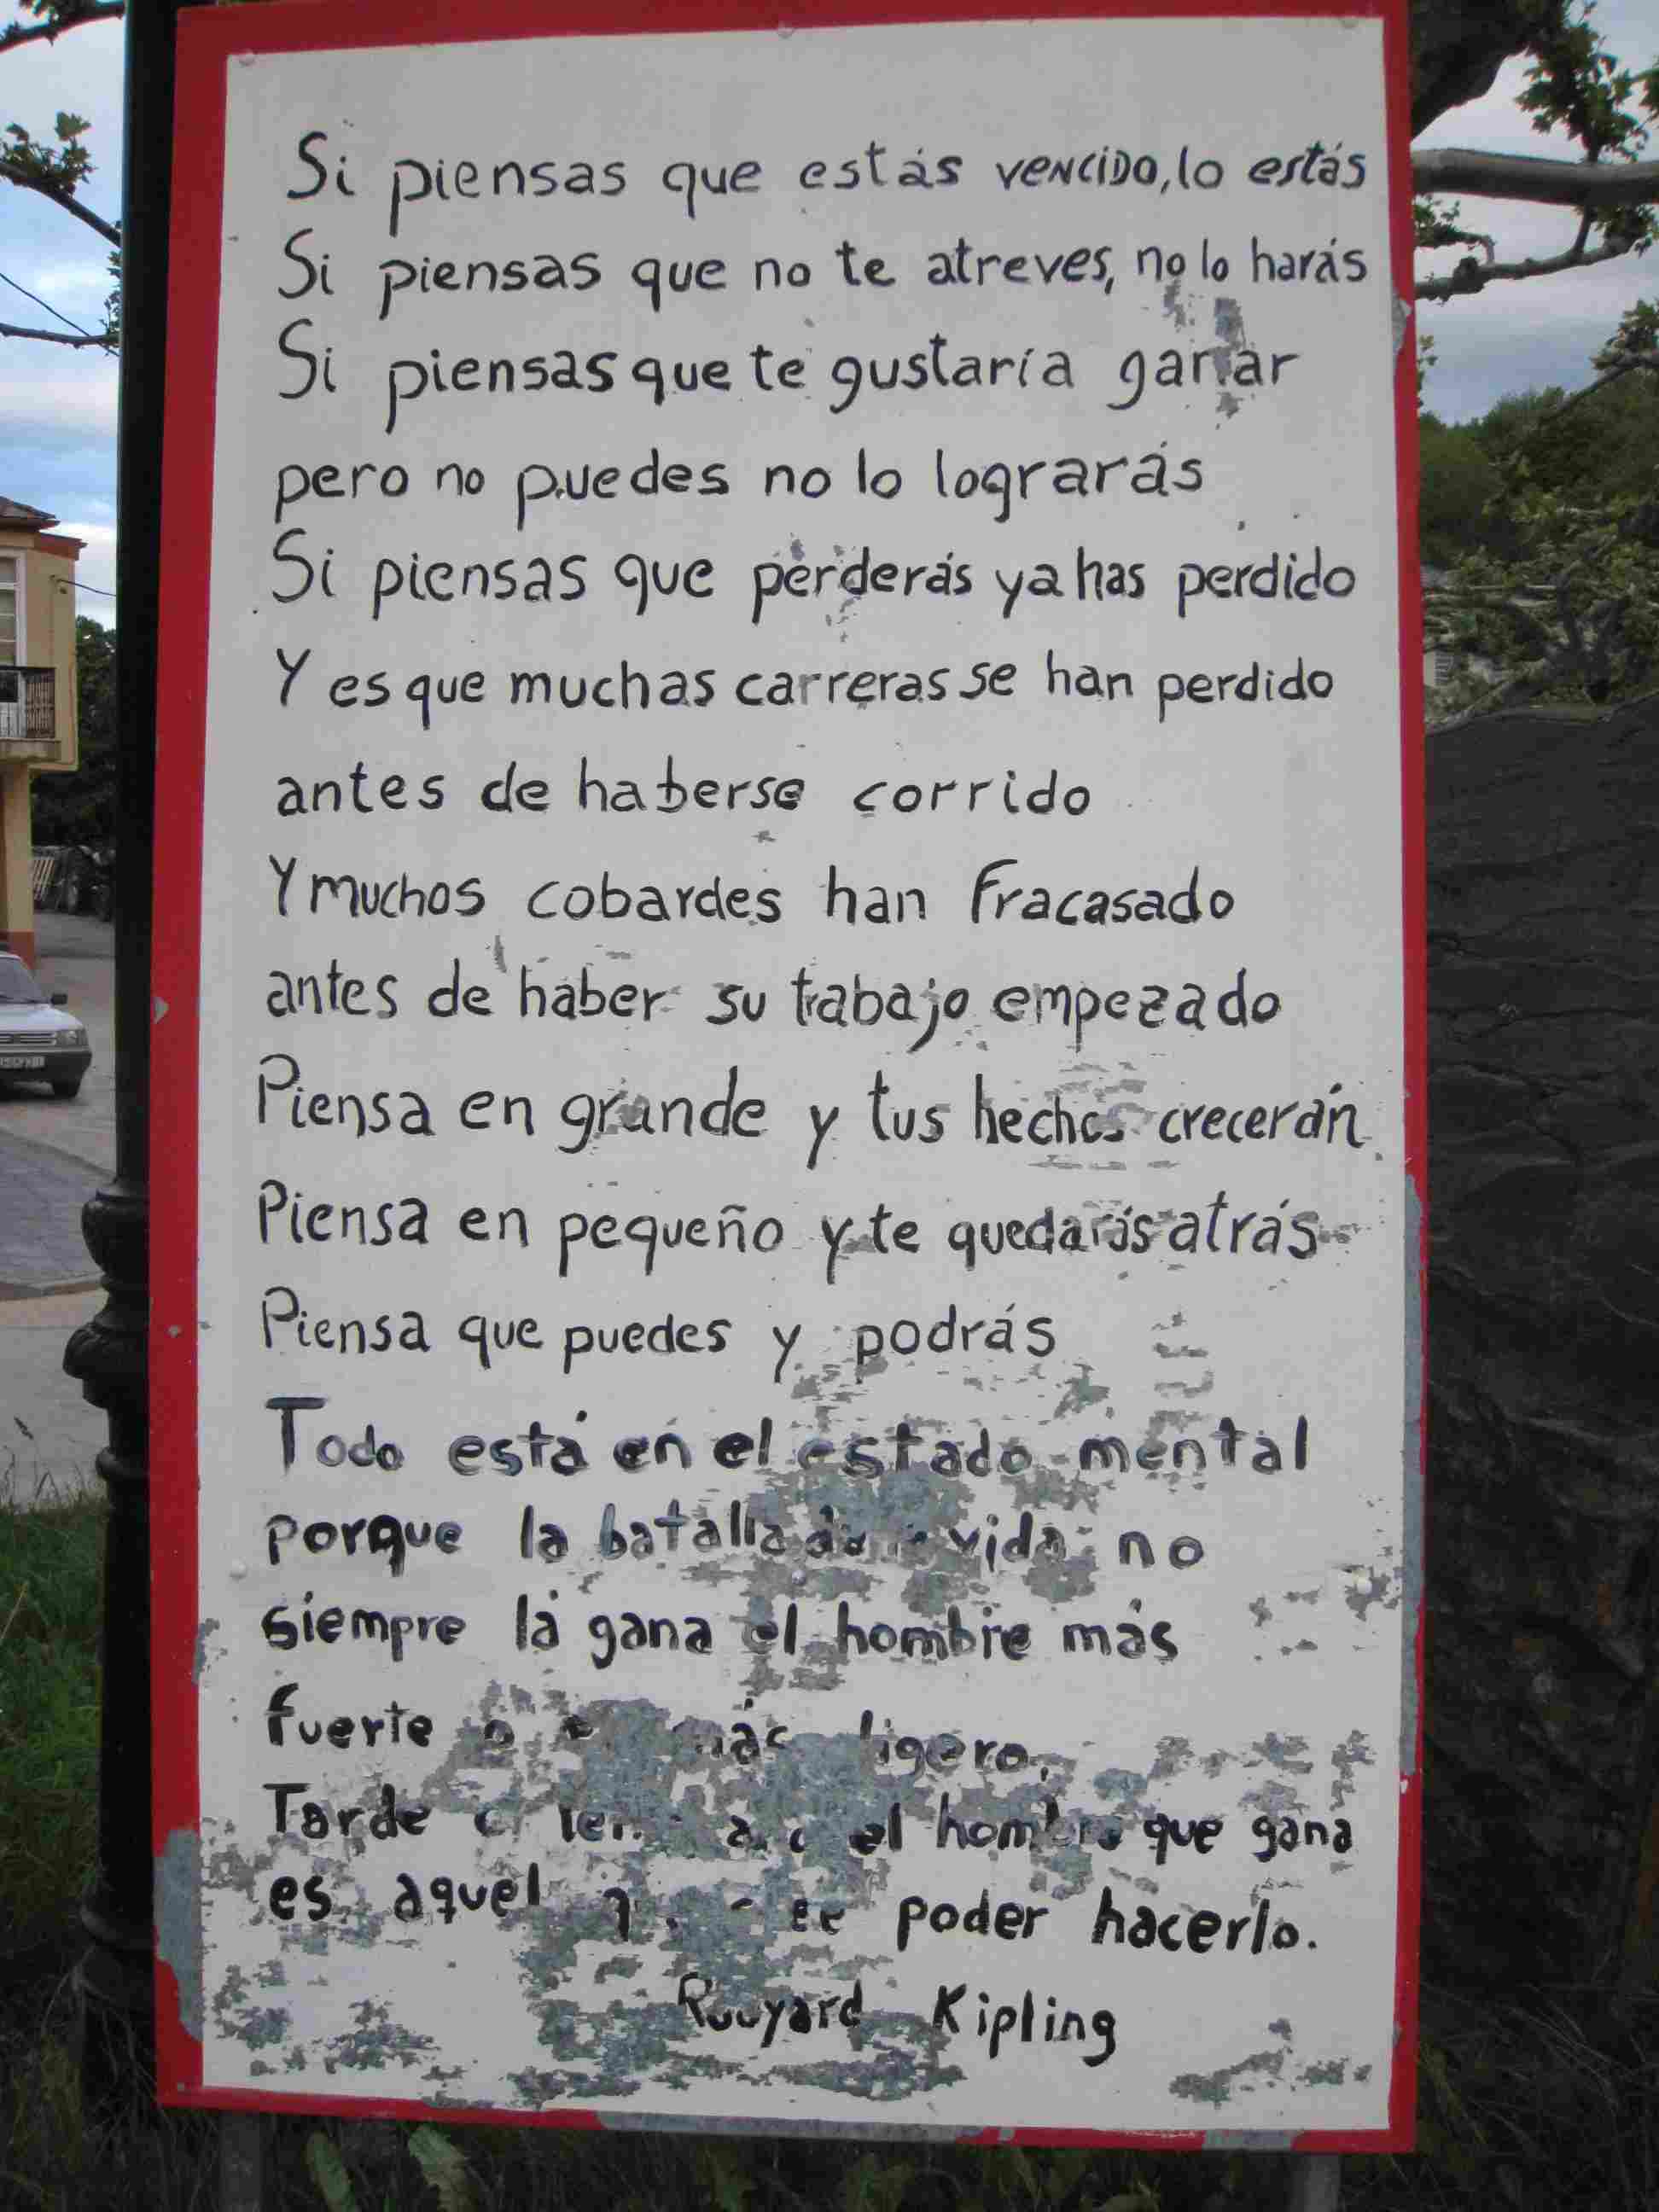 Si piensas que estás vencido, lo estás
Si piensas que no te atreves, no lo harás
Si piensas que te gustaría ganar
pero no puedes no lo lograrás
Si piensas que perderás ya has perdido
Y es que muchas carreras se han perdido
antes de haberse corrido
Y muchos cobardes han fracasado
antes de haber su trabajo empezado
Piensa en grande y tus hechos crecerán
Piensa en pequeño y te quedarás atrás
Piensa que puedes y podrás
Todo está en el estado mental
porque la batalla de vida no
siempre la gana el hombre más
fuerte o más ligero,
Tarde o el hombre que gana
es aquel poder hacerlo.
Rudyard Kipling